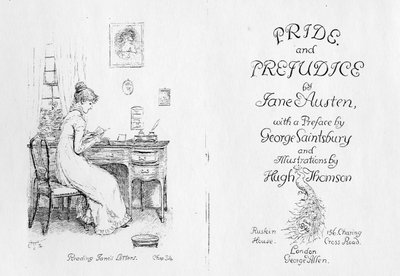 Reading Jane's Letters. Chap 34.
PRIDE.
and
PREJUDICE
by
Jane Austen,
with a Preface by
George Saintsbury
and
Illustrations by
Hugh Thomson
Ruskin 156. Charing
House. Cross Road.
London
George Allen.